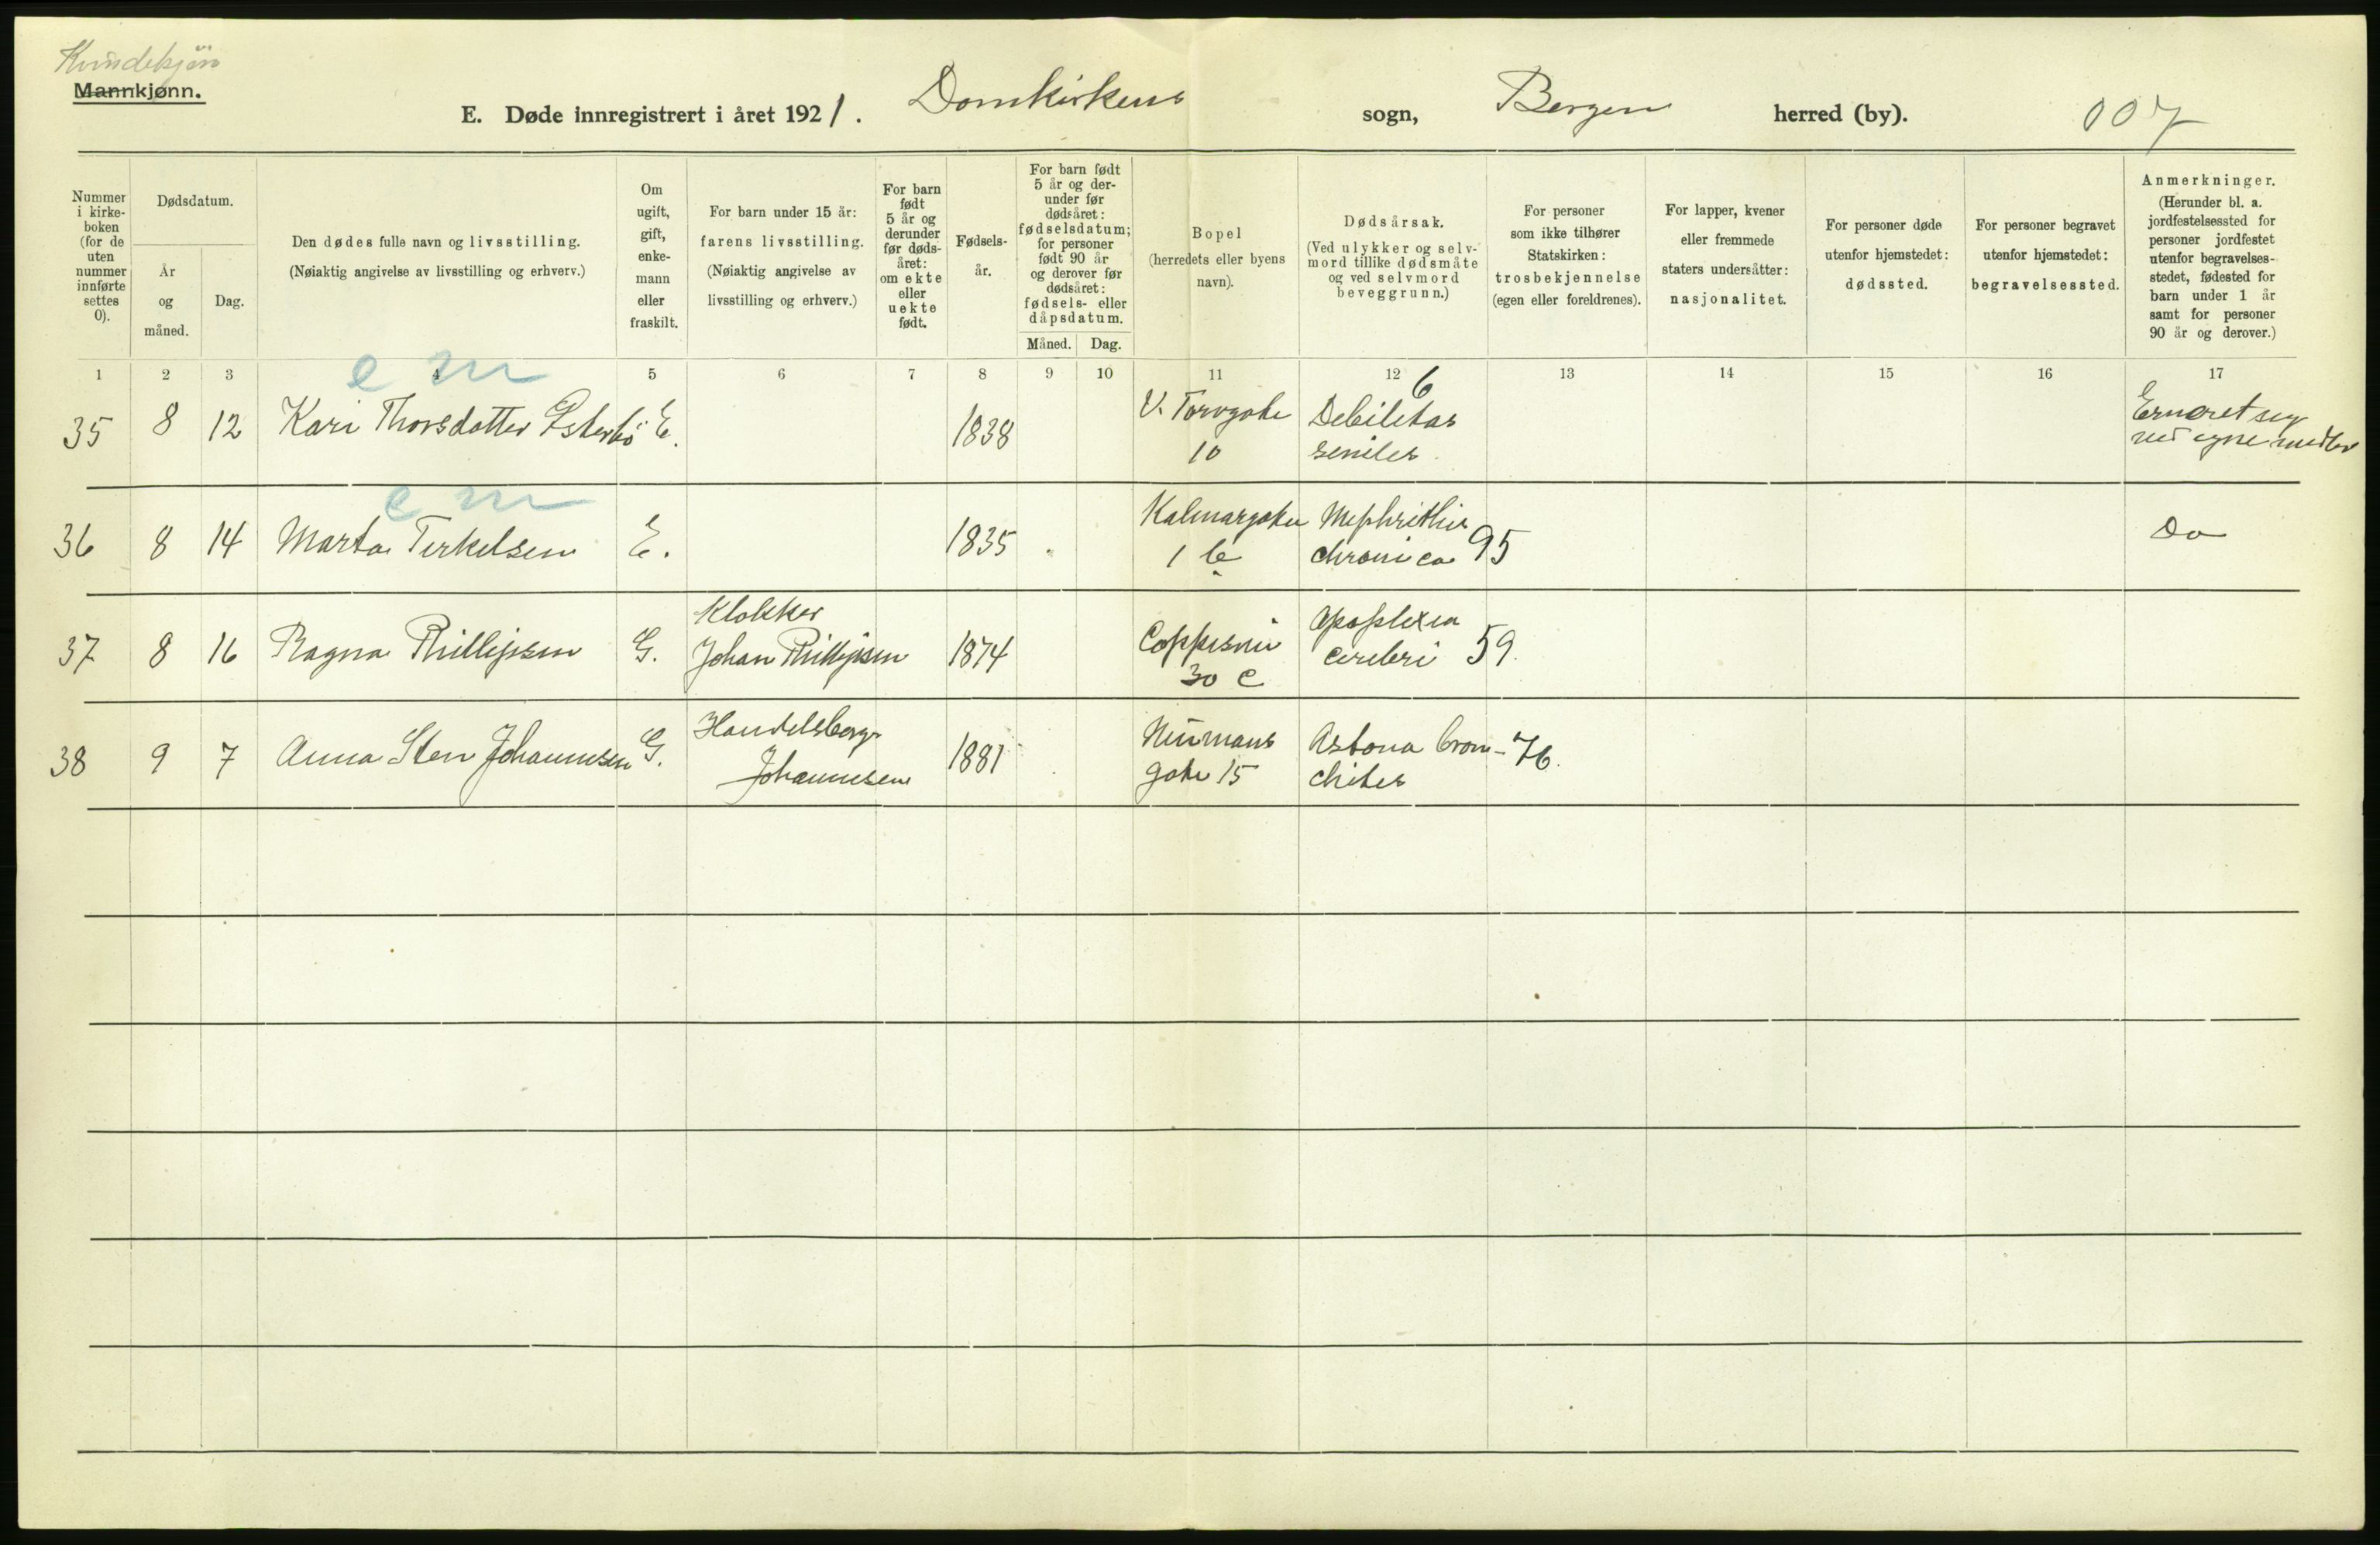 Kvindekjøn
Mannkjønn.
E. Døde innregistrert i året 1921. Domkirkens sogn, Bergen herred (by). 007
Nummer i kirke- boken (for de uten nummer innførte settes 0).
Dødsdatum.
År og måned.
Dag.
Den dødes fulle navn og livsstilling. (Nøiaktig angivelse av livsstilling og erhverv.)
Om ugift, gift, enke- mann eller fraskilt.
For barn under 15 år: farens livsstilling. (Nøiaktig angivelse av livsstilling og erhverv.)
For barn født 5 år og derunder før døds- året: om ekte eller uekte født.
Fødsels- år.
For barn født 5 år og der- under før dødsåret: fødselsdatum; for personer født 90 år og derover før dødsåret: fødsels- eller dåpsdatum.
Måned. Dag.
Bopel (herredets eller byens navn).
Dødsårsak. (Ved ulykker og selv- mord tillike dødsmåte og ved selvmord beveggrunn.)
For personer som ikke tilhører Statskirken: trosbekjennelse (egen eller foreldrenes).
For lapper, kvener eller fremmede staters undersåtter: nasjonalitet.
For personer døde utenfor hjemstedet: dødssted.
For personer begravet utenfor hjemstedet: begravelsessted.
Anmerkninger. (Herunder bl. a. jordfestelsessted for personer jordfestet utenfor begravelses- stedet, fødested for barn under 1 år samt for personer 90 år og derover.)
1 2 3 4 5 6 7 8 9 10 11 12 13 14 15 16 17
e m
35 8 12 Kari Thorsdotter Østerbö E. 1838 V. Torvgate 10 Debilitas seniles 6 Ernæret seg ved egne midler
e m
36 8 14 Marta Terkelsen E. 1835 Kalmargaten 1 b Nephrithis chronica 95 Do
37 8 16 Ragna Phillipsen G. Klokker Johan Phillipsen 1874 Coppismu 30 c Apoplexia cerebri 59.
38 9 7 Anna Sten Johannesen G. Handelsborg. Johannesen 1881 Neumans gate 15 Astma bron- chites 76.